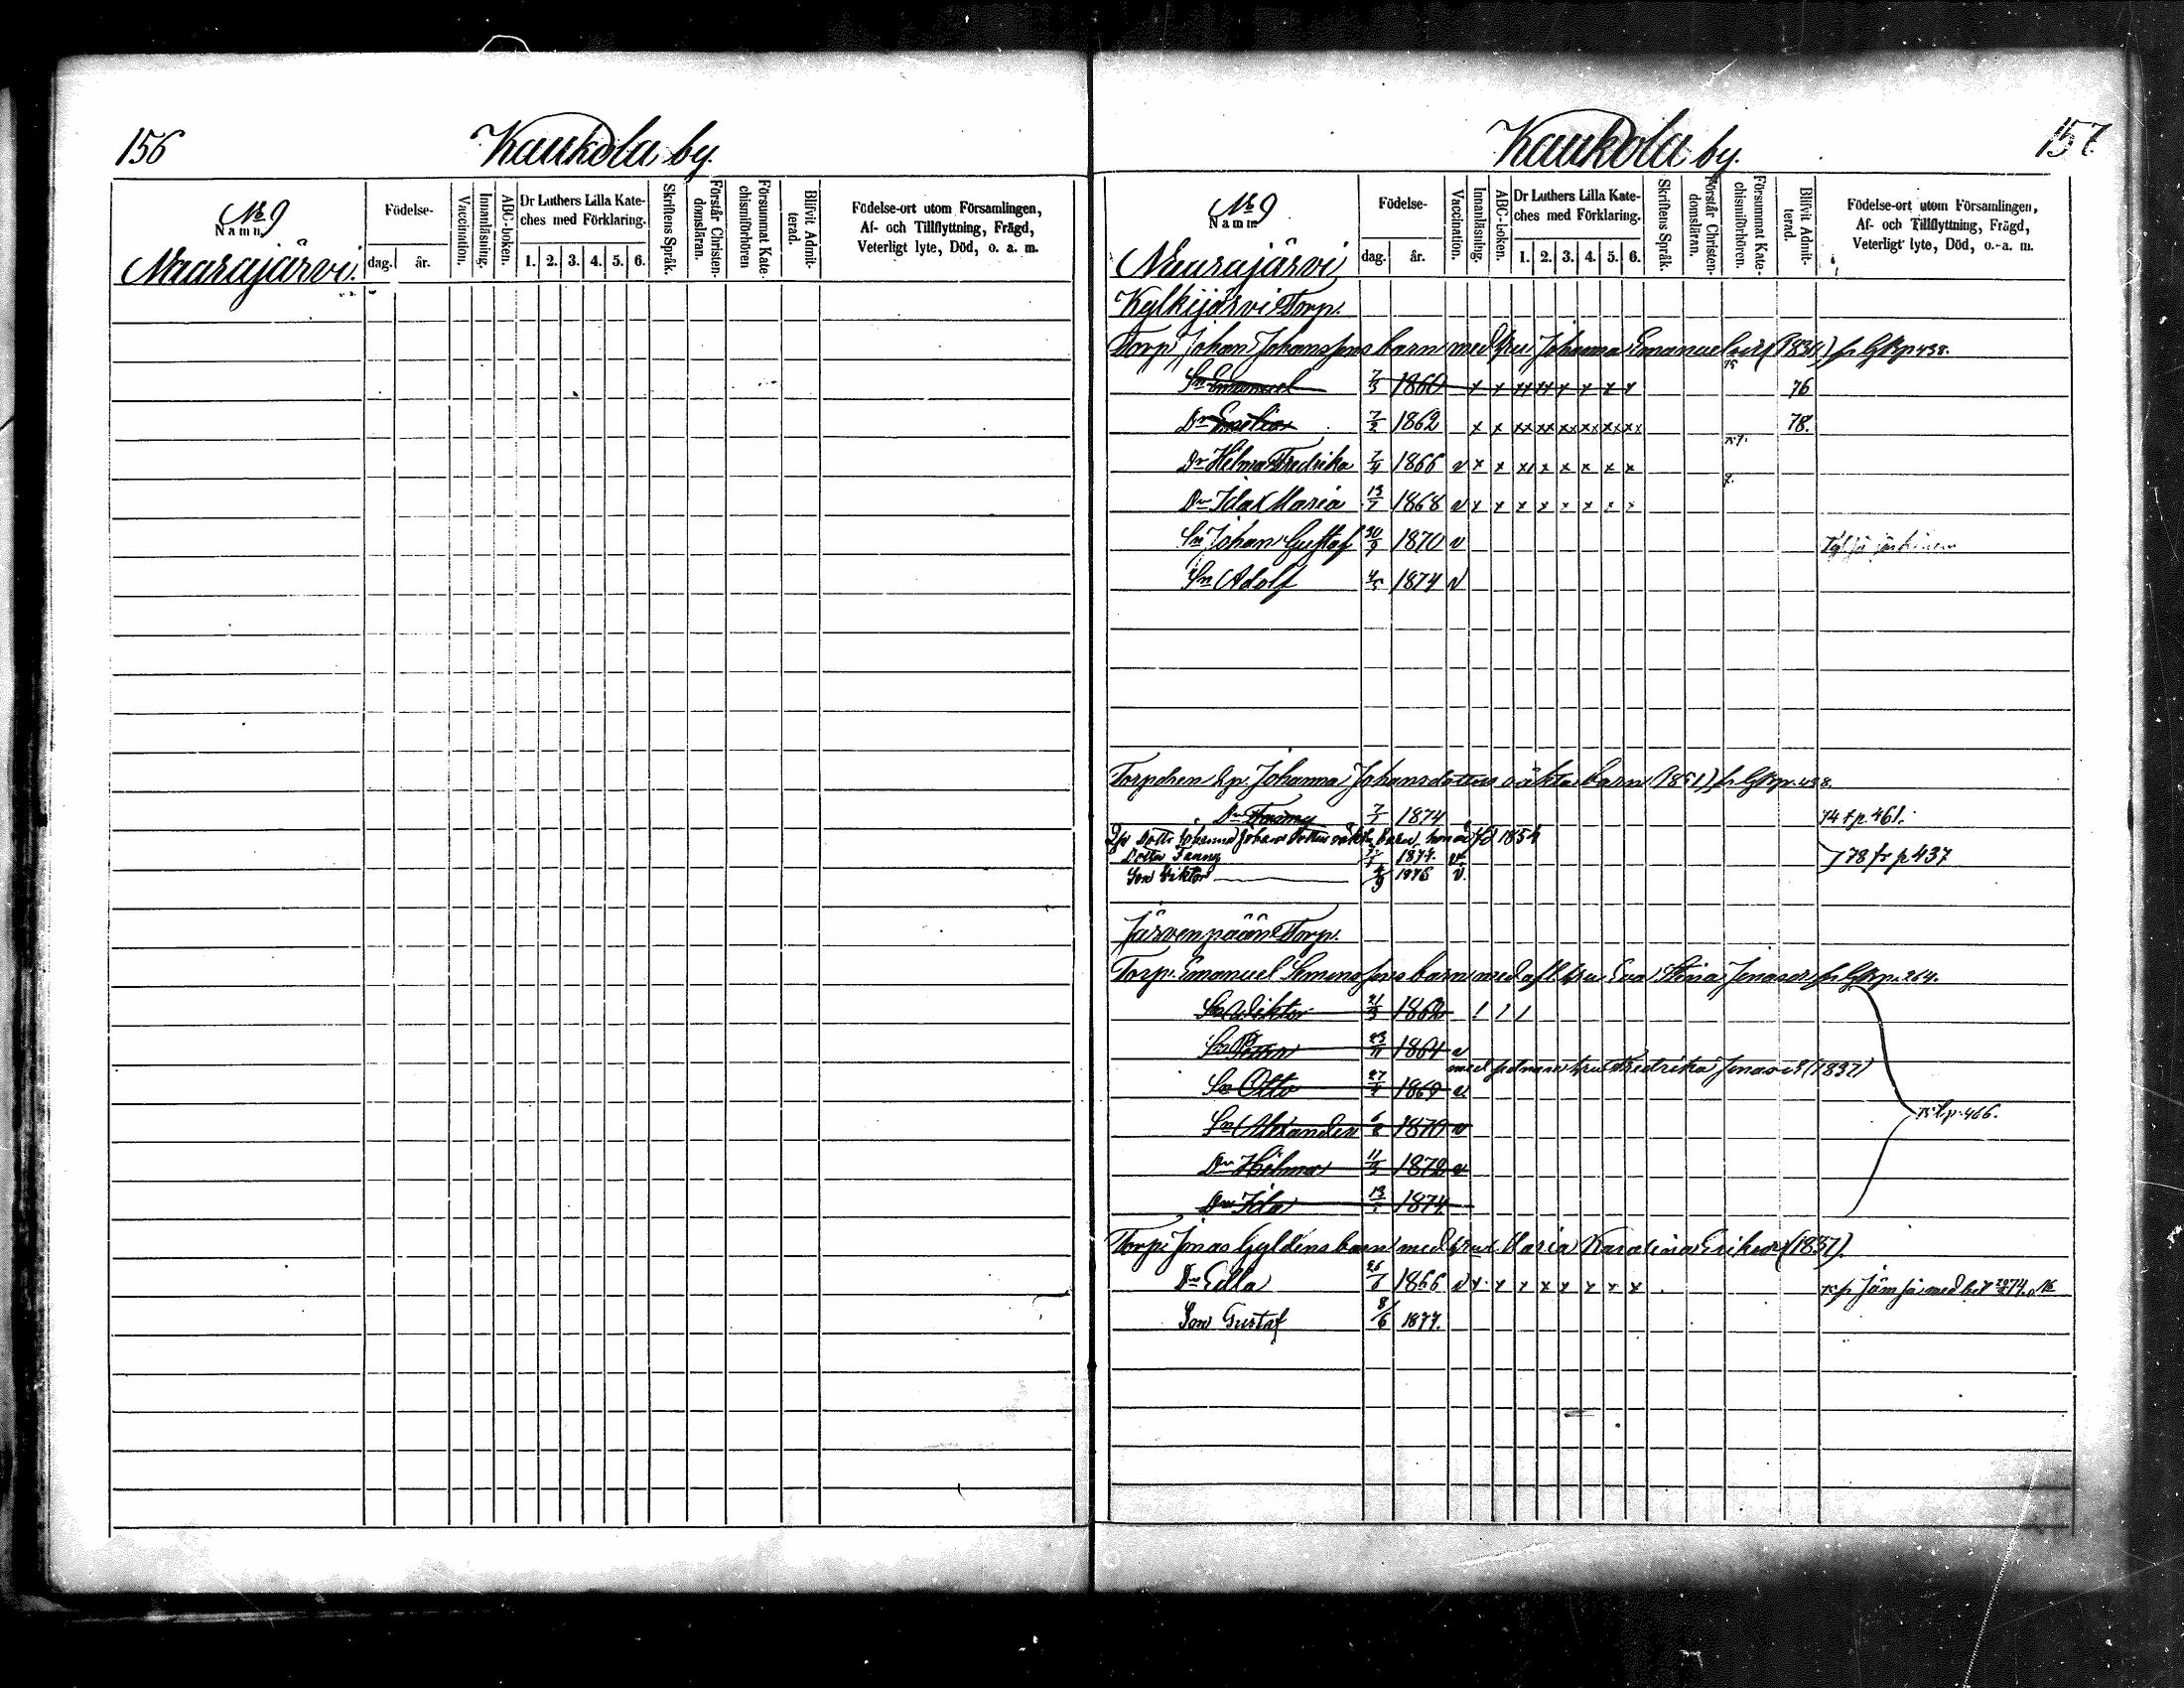 156
Kaukola by.
No 9
Namn.
Naarajärvi.
Födelse-
dag. år.
Vaccination.
Innanläsning.
ABC-boken.
Dr Luthers Lilla Kate-
ches med Förklaring.
1. 2. 3. 4. 5. 6.
Skriftens Språk.
Förstår Christen-
domsläran.
Försummat Kate-
chismiförhören
Blifvit Admit-
terad.
Födelse-ort utom Församlingen,
Af- och Tillflyttning, Frägd,
Veterligt lyte, Död, o. a. m.
157
Kaukola by.
No 9
Namn
Naarajärvi
Födelse-
dag. år.
Vaccination.
Innanläsning.
ABC-boken.
Dr Luthers Lilla Kate-
ches med Förklaring.
1. 2. 3. 4. 5. 6.
Skriftens Språk.
Förstår Christen-
domsläran.
Försummat Kate-
chismiförhören.
Blifvit Admit-
terad.
Födelse-ort utom Församlingen,
Af- och Tillflyttning, Frägd,
Veterligt lyte, Död, o. a. m.
Kylkijärvi Torp.
Torp Johan Johanssons barn med hu Johanna Emanuelsdr (1834) fr GKp 438.
Sn Emanuel 7/3 1860 x x xx xx x x x x 76
Dr Emelia 7/2 1862 x x xx xx xx xx xx xx 78.
Dr Hilma Fredrika 7/4 1866 v x x xx x x x x x
Dr Ida Maria 13/7 1868 v x x x x x x x x
Sn Johan Gustaf 30/9 1870 v
Sn Adolf 4/5 1874 v
Torpdren Lp. Johanna Johansdotters oäkta barn (1851) fr GKp. 438.
Dr Fanny 7/1 1874 74 t p. 461.
Lp Dottr Johanna Johansdotters oäkta barn, hon är fd 1854
Dottr Fanny 1874. v. 78 fr p 437
Son Viktor 4/9 1876 v.
Järvenpään Torp.
Torp. Emanuel Simonssons barn med afl. hu Eva Stina Jonasdr fr GKp. 264.
Sn Wiktor 21/3 1862 / / /
Sn 23/11 1864 v
med hu Fredrika Jonasdr (1837)
Sn Otto 27/4 1869 v.
Sn Alexander 6/2 1870 v
t. p. 466.
Dr Hilma 11/3 1872 v
Dr Ida 13/1 1874
Torp. Jonas Gyldens barn med hu Maria Karolina Eriksdr (1837).
Dr Edla 26/8 1866 v x x x x x x x x fr Jämsä med bet 74. 16
Son Gustaf 8/6 1877.